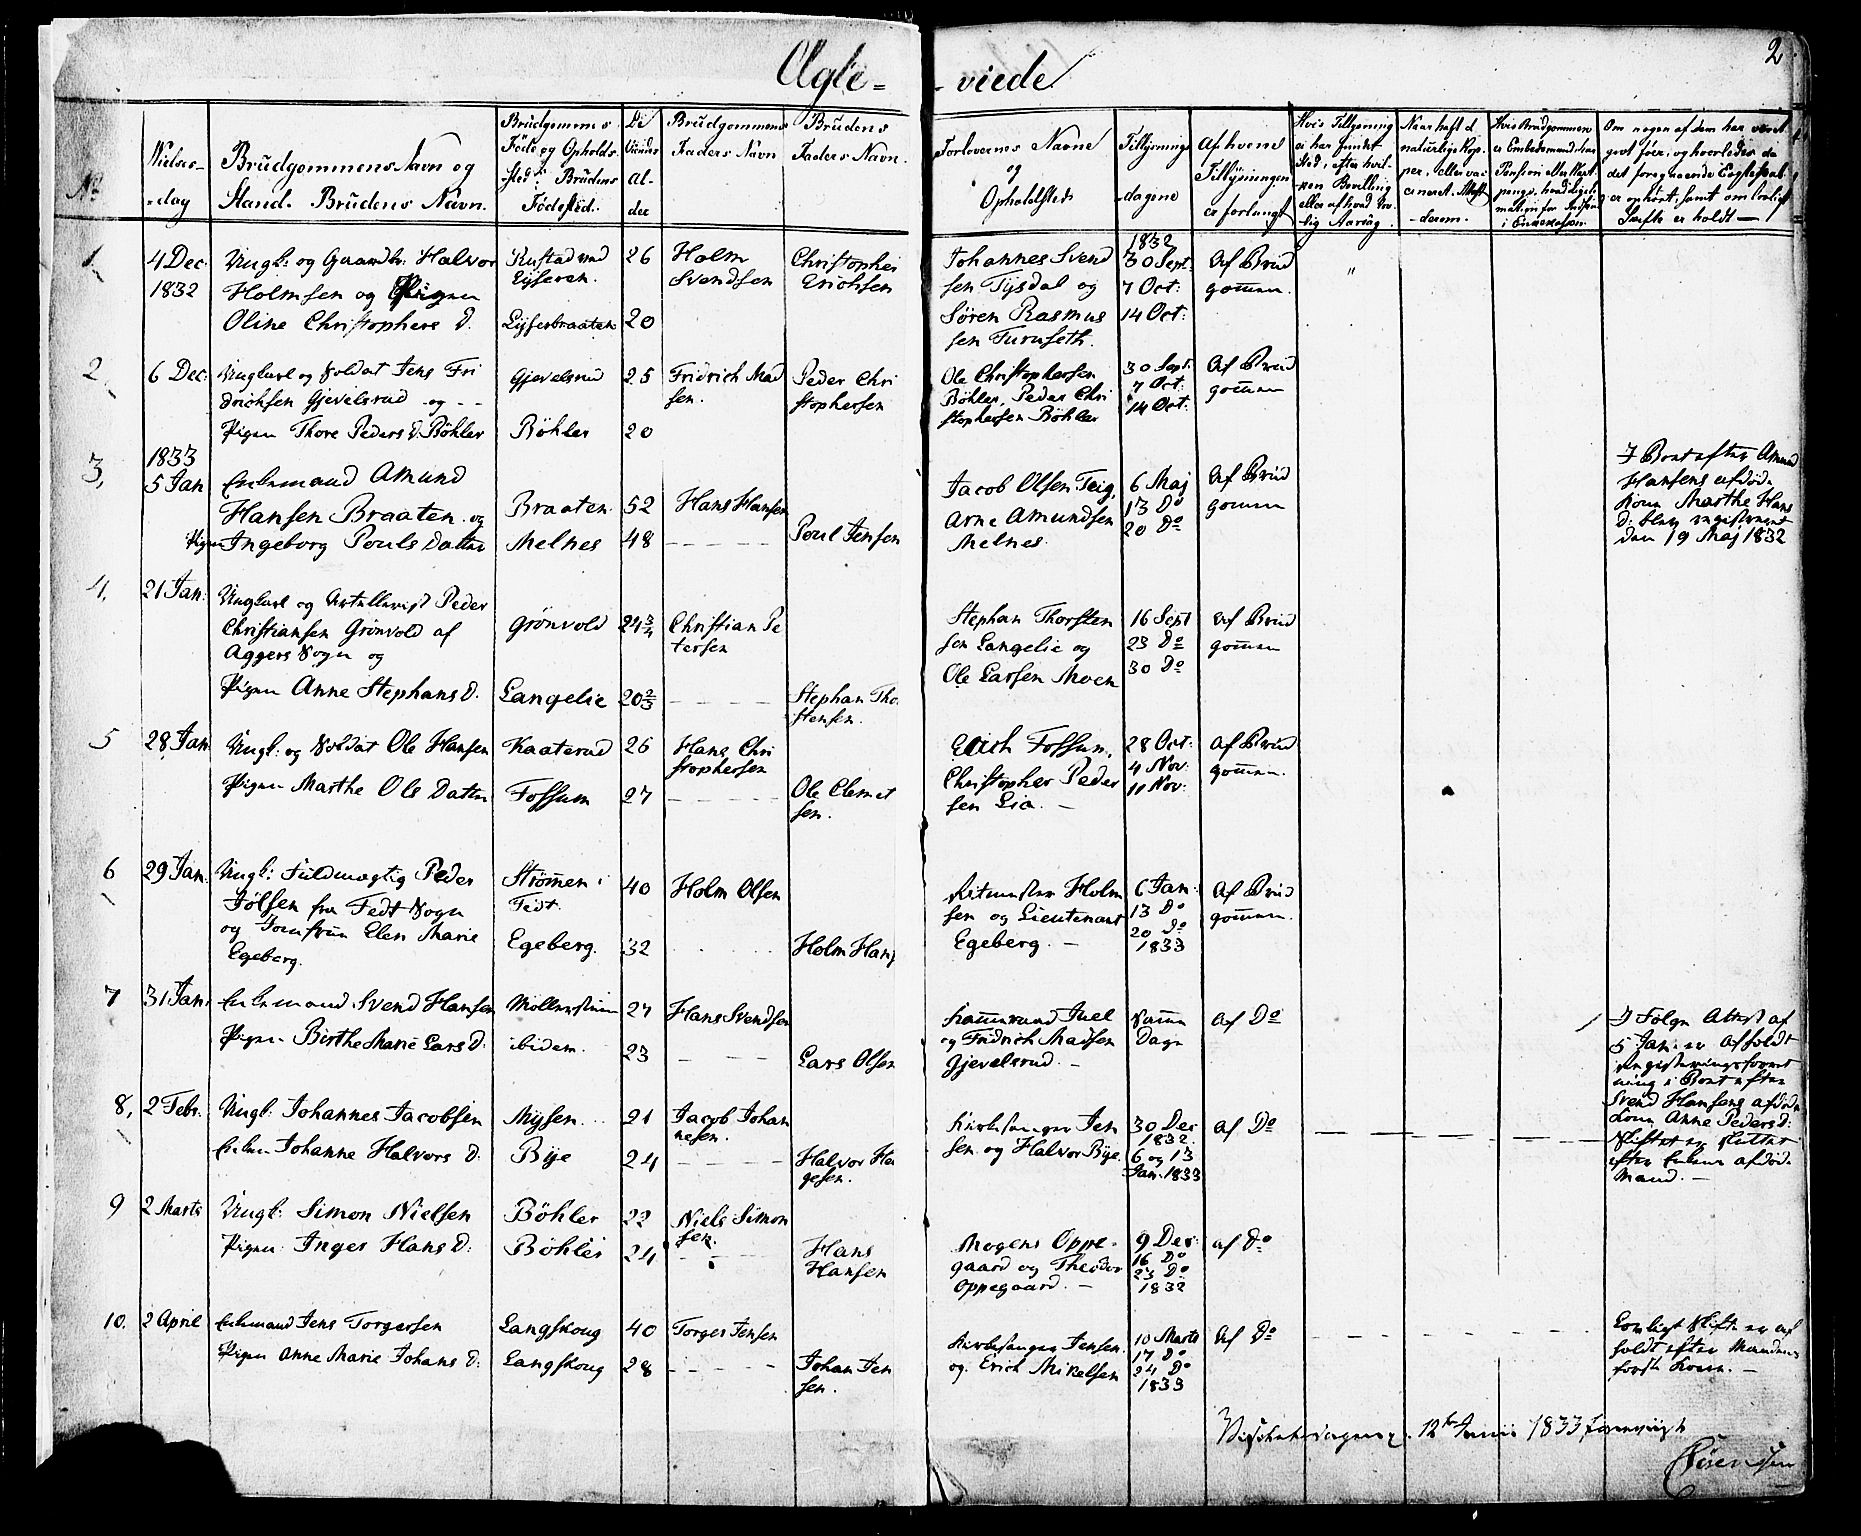 Ægte- -viede
2
No
Vielses-
-dag
Brudgommens Navn og
Stand. Brudens Navn.
Brudgommens
Föde og Opholds-
-sted: Brudens
Födested.
De
Viedes
Al-
der
Brudgommens
Faders Navn
Brudens
Faders Navn.
Forlovernes Navne
og
Opholdsted
Tillysnings
dagene
Af hvem
Tillysningen
er forlangt
Hvis Tillysning
ei har fundet
sted, efter hvil-
ken Bevilling
eller af hvad
lig Aarsag.
Naar haft d
naturlige Kop-
per, eller vac-
cineret. Attest
Hvis Brudgommen
er Embedsmand, har
Pension
i Enkekassen.
Om nogen af dem har været
givt før, og hvorledes da
det foregaaende Egteskab
er ophört, samt om lovligt
Skifte er holdt —
1
4 Dec
1832
Ungk: og Gaardbr. Halvor
Holmsen og Pigen
Oline Christophers D.
Lyseren.
Lyserbraaten
26
20
Holm
Svendsen
Christopher
Erichsen
Johannes Svend
sen Tysdal og
Sören Rasmus
sen Turnseth.
1832
30 Sept:
7 Oct:
14 Oct:
Af Brud
gommen.
"
2
6 Dec:
Ungkarl og Soldat Jens Fri
drichsen Gjevelsrud og - -
Pigen Thore Peders D. Böhler
Gjevelsrud
Böhler
25
20
Fridrich Mad
sen.
Peder Chri
stophersen
Ole Christophersen
Böhler, Peder Chri
stophersen Böhler
30 Sept:
7 Oct:
14 Oct:
Af Brud
gommen
3,
1833
5 Jan
Enkemand Amund
Hansen Braaten og
Pigen Ingeborg Pouls Datter
Braaten
Melnes
52
48
Hans Hansen
Poul Jensen
Jacob Olsen Teig,
Arne Amundsen
Melnes.
6 Maj
13 Do
20 Do
Af Brud
gommen
I Boet efter Amund
Hansens afdöde
Kone Marthe Hans
D: blev registreret
den 19 Maj 1832
4.
21 Jan:
Ungkarl og Artillerist Peder
Christiansen Grönvold af
Aggers Sogn og
Pigen Anne Stephans D.
Grönvold
Langelie
24 3/4
20 2/3
Christian Pe
tersen
Stephan Tho
stensen.
Stephan Thorsten
sen Langelie og
Ole Larsen Moen
16 Sept
23 Do
30 Do
Af Brud
gommen
5
28 Jan
Ungk: og Soldat Ole Hansen
Pigen Marthe Ols Datter
Kaaterud
Fossum
26
27
Hans Chri
stophersen
Ole Clemet
sen.
Erich Fossum,
Christopher Peder
sen Lia. —
28 Oct:
4 Nov:
11 Nov:
Af Brud
gommen.
6
29 Jan.
Ungk: Fuldmægtig Peder
Jölsen fra Fedt Sogn
og Jomfrue Elen Marie
Egeberg.
Strömen i
Fedt.
Egeberg.
40
32
Holm Olsen
Holm Hans
Ritmester Holm
sen og Lieutenant
Egeberg. —
6 Jan:
13 Do
20 Do
1833
Af Brud
gommen.
7
31 Jan:
Enkemand Svend Hansen
Pigen Birthe Marie Lars D.
ibidem.
27
23
Hans Svendsen
Lars Olsen
Kammerraad Juel
og Fridrich Madsen
Gjevelsrud. —
Samme
Dage
Af Do
I Fölge Attest af
5 Jan. er afholdt
registreringsforret
ning i Boet efter
Svend Hansens afdöde
Kone Anne Peders D:
8,
2 Febr.
Ungk: Johannes Jacobsen
Enken Johanne Halvors D.
Mysen
Bye
21
24
Jacob Johan
nesen.
Halvor Ha
gesen.
Kirkesanger Jen
sen og Halvor Bye.
30 Dec
1832.
6 og 13
Jan. 1833
Af Do
Skiftet er sluttet
efter Enkens afdöde
Mand. —
9
2 Marts
Ungk: Simon Nielsen
Pigen Inger Hans D:
Böhler
Böhler
22
24
Niels Simon
sen.
Hans
Hansen
Mogens Oppe-
gaard og Theodor
Oppegaard. —
9 Dec:
16 Do
23 Do
1832
af Do
10.
2 April
Enkemand Jens Torgersen
Pigen Anne Marie Johans D:
Langskoug
Langskoug
40
28
Torger Jensen
Johan Jen
sen.
Kirkesanger Jensen
og Erich Mikelsen
10 Marts
17 Do
24 Do
1833
Af Do
Lovligt Skifte er af
holdt efter Mandens
forste Kone. —
12te Junii 1833